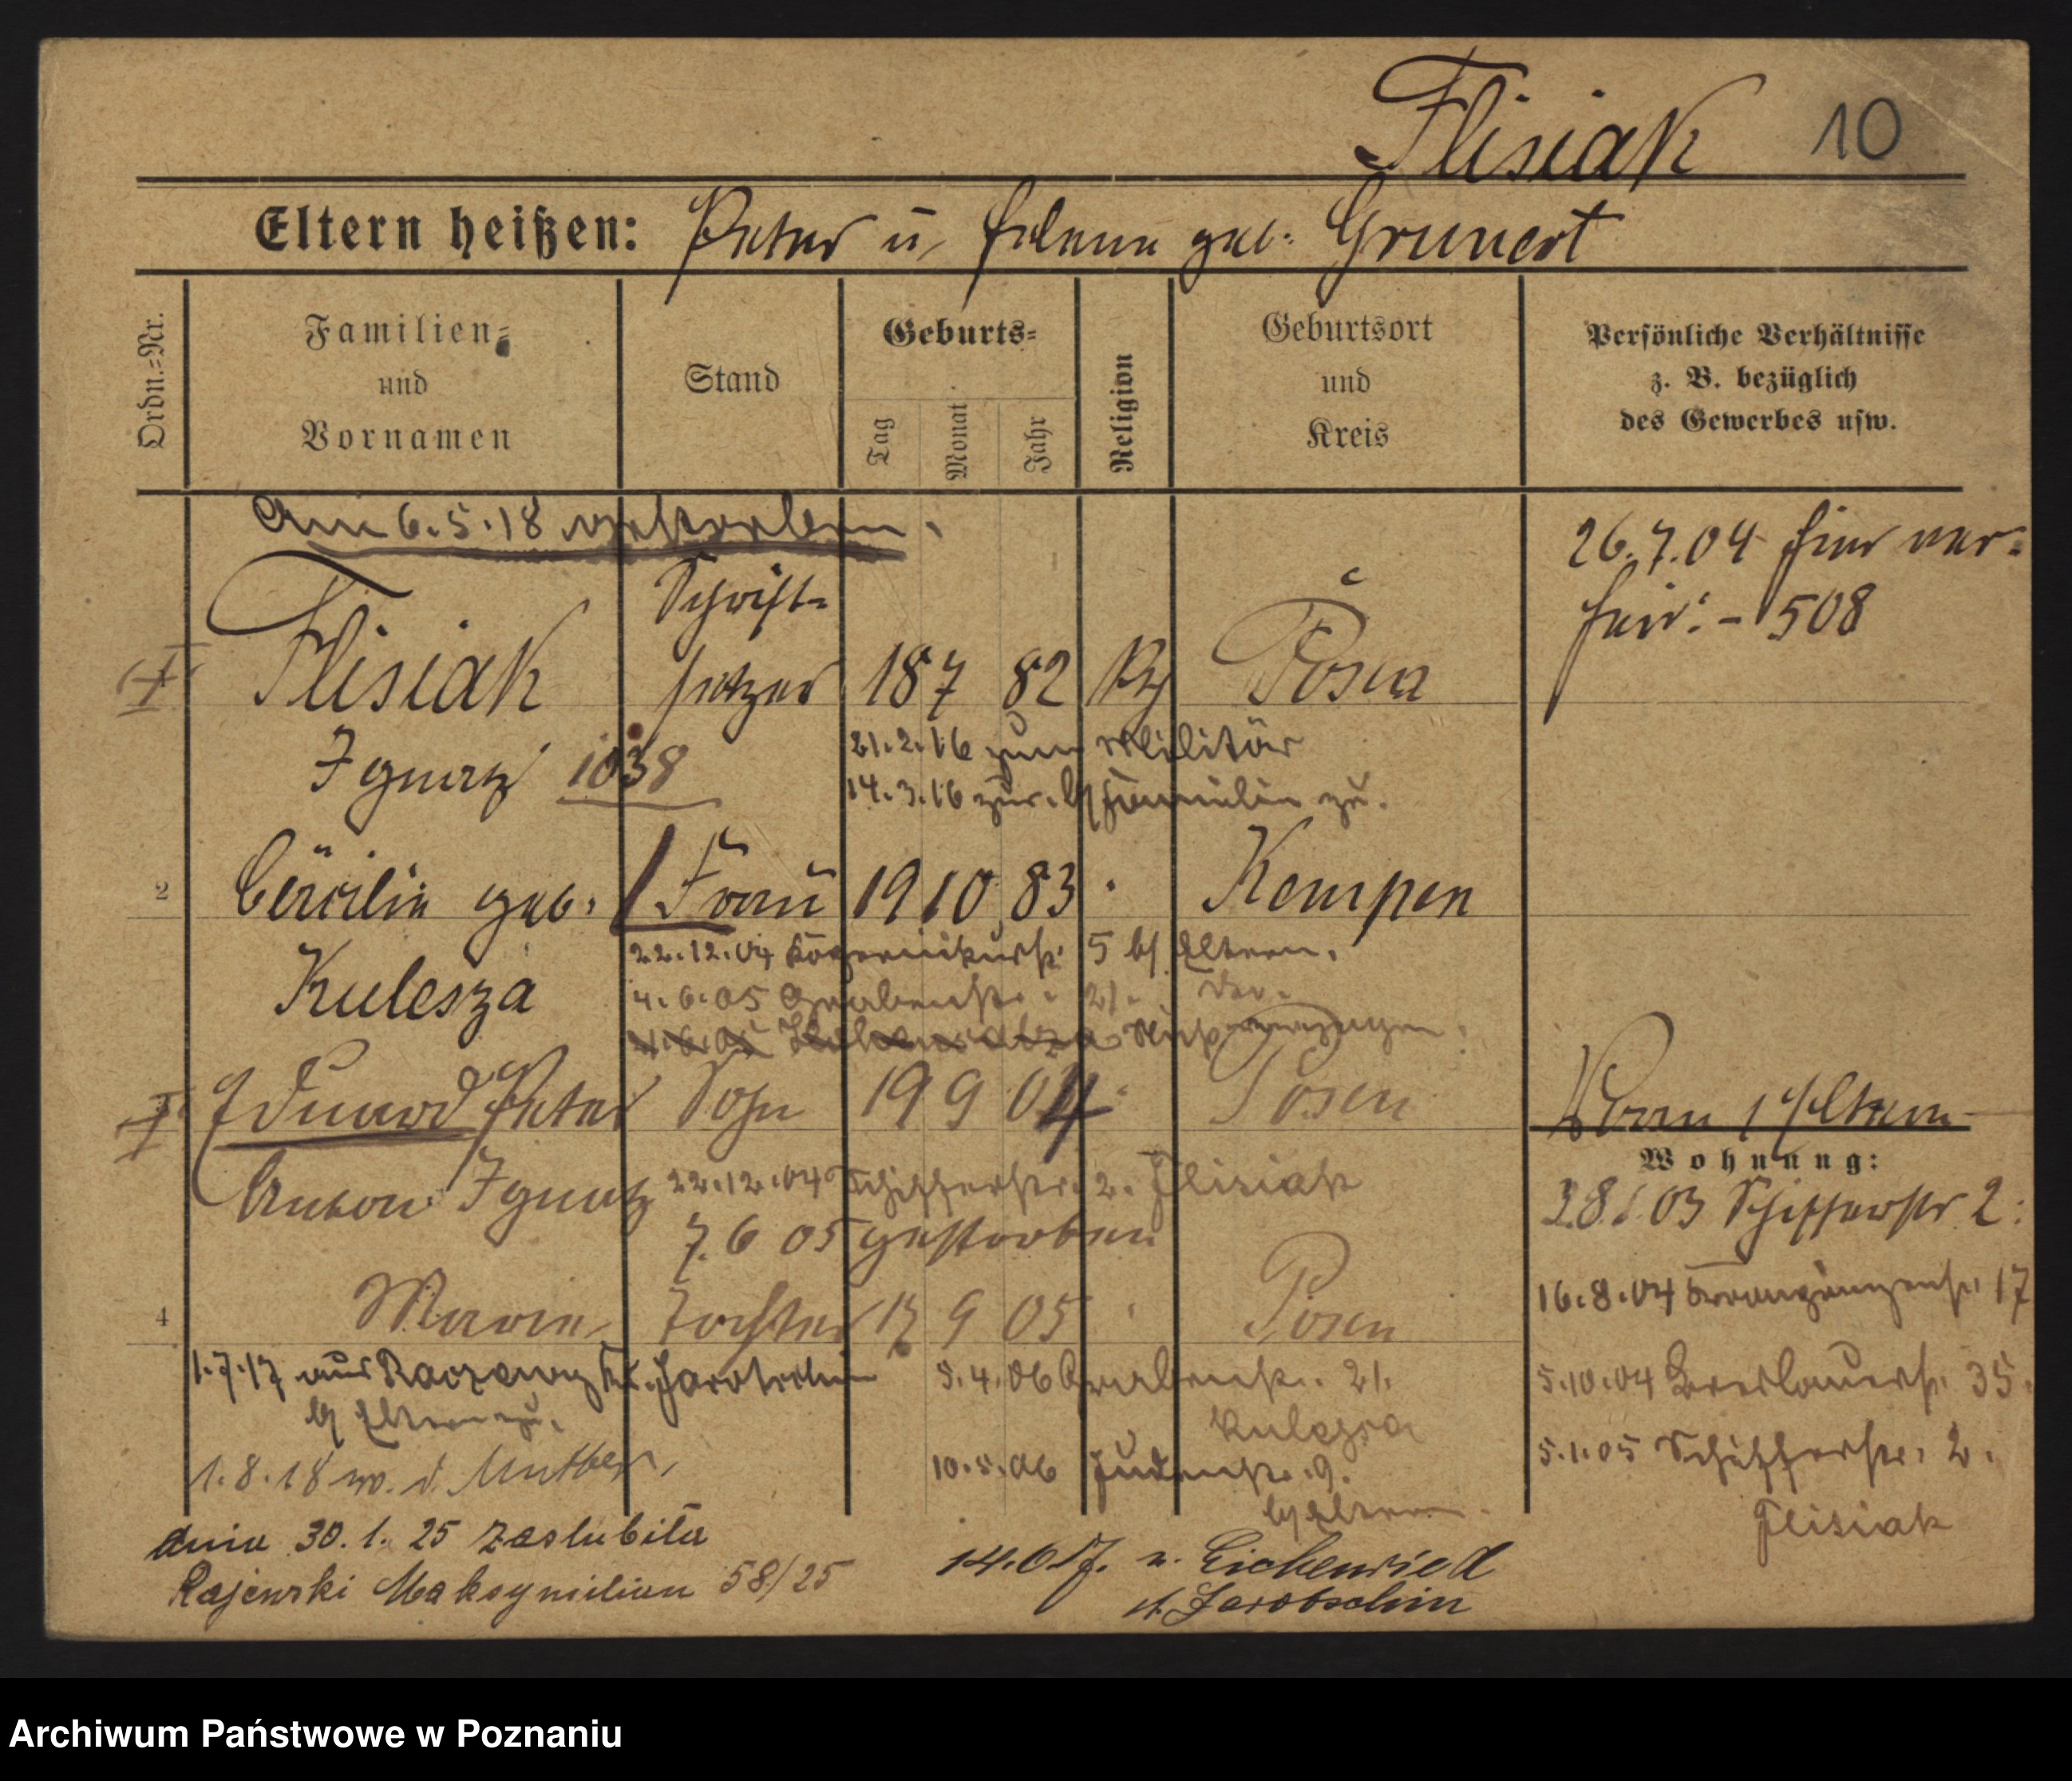 Flisiak 10
Eltern heißen: Peter u. Helene geb. Grunert
Ordn.=Nr.
Familien=
und
Vornamen
Stand
Geburts=
Tag
Monat
Jahr
Religion
Geburtsort
und
Kreis
Persönliche Verhältnisse
z. B. bezüglich
des Gewerbes usw.
am 6.5.18 verstorben.
26.7.04 hier ver=
heir. - 508
Schrift=
Flisiak setzer 18 7 82 Posen
Ignatz 1038
21.2.16 zum Militär
14.3.16 zur. b/ Familie zu.
2 Cäcilie geb. Frau 19 10 83 Kempen
Kulesza
22.12.04 5 b/ Eltern.
4.6.05 Grabenstr. 21.
Eduard Peter Sohn 19 9 04 Posen
Anton Ignatz
22.12.04 Schifferstr. 2. Flisiak
7. 6 05 gestorben
Vorn / Eltern
Wohnung:
03 Schifferstr 2.
16.8.04 17
5.10.04 Breslauerstr. 35.
5.1.05 Schifferstr. 2.
Flisiak
4 Marie Tochter 17 9 05 Posen
1.7.17 aus Kr. Jarotschin
b/ Eltern zu.
1.8.18 w. d. Mutter,
5.4.06 Grabenstr. 21.
Kulesza
10.5.06 Judenstr. 9.
b/ Eltern.
dnia 30.1.25 zaslubiła
Rajewski Maksymilian 58/25
n. Eichenried
Jarotschin
Archiwum Państwowe w Poznaniu